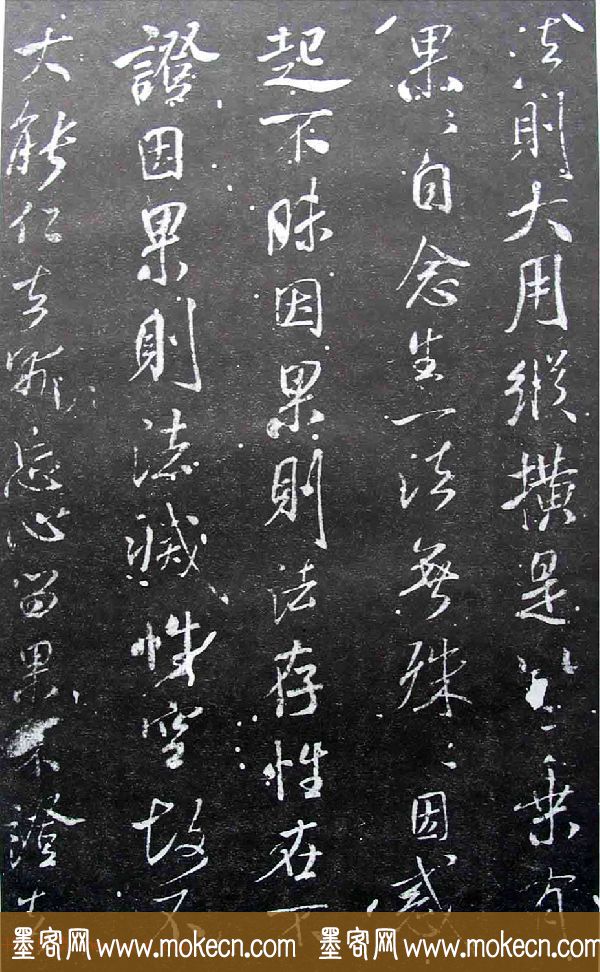 法則大用縱橫是以一乘有
果〻自念生一法無殊〻因感
起不昧因果則法存性在不
證因果則法滅性空故不
大能仁去斷忘心留果不證
墨客网 www.mokecn.com 墨客网 www.mokecn.com